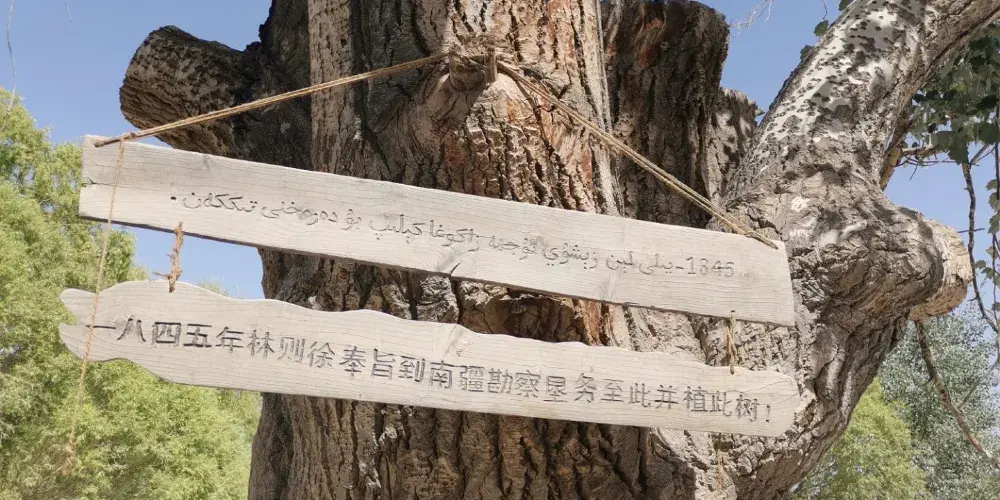 1845-يىلى لىن زېشۈي قۇجنە زاكوغا كېلىپ بۇ دەرەخنى تىككەن.
一八四五年林则徐奉旨到南疆勘察垦务至此并植此树！